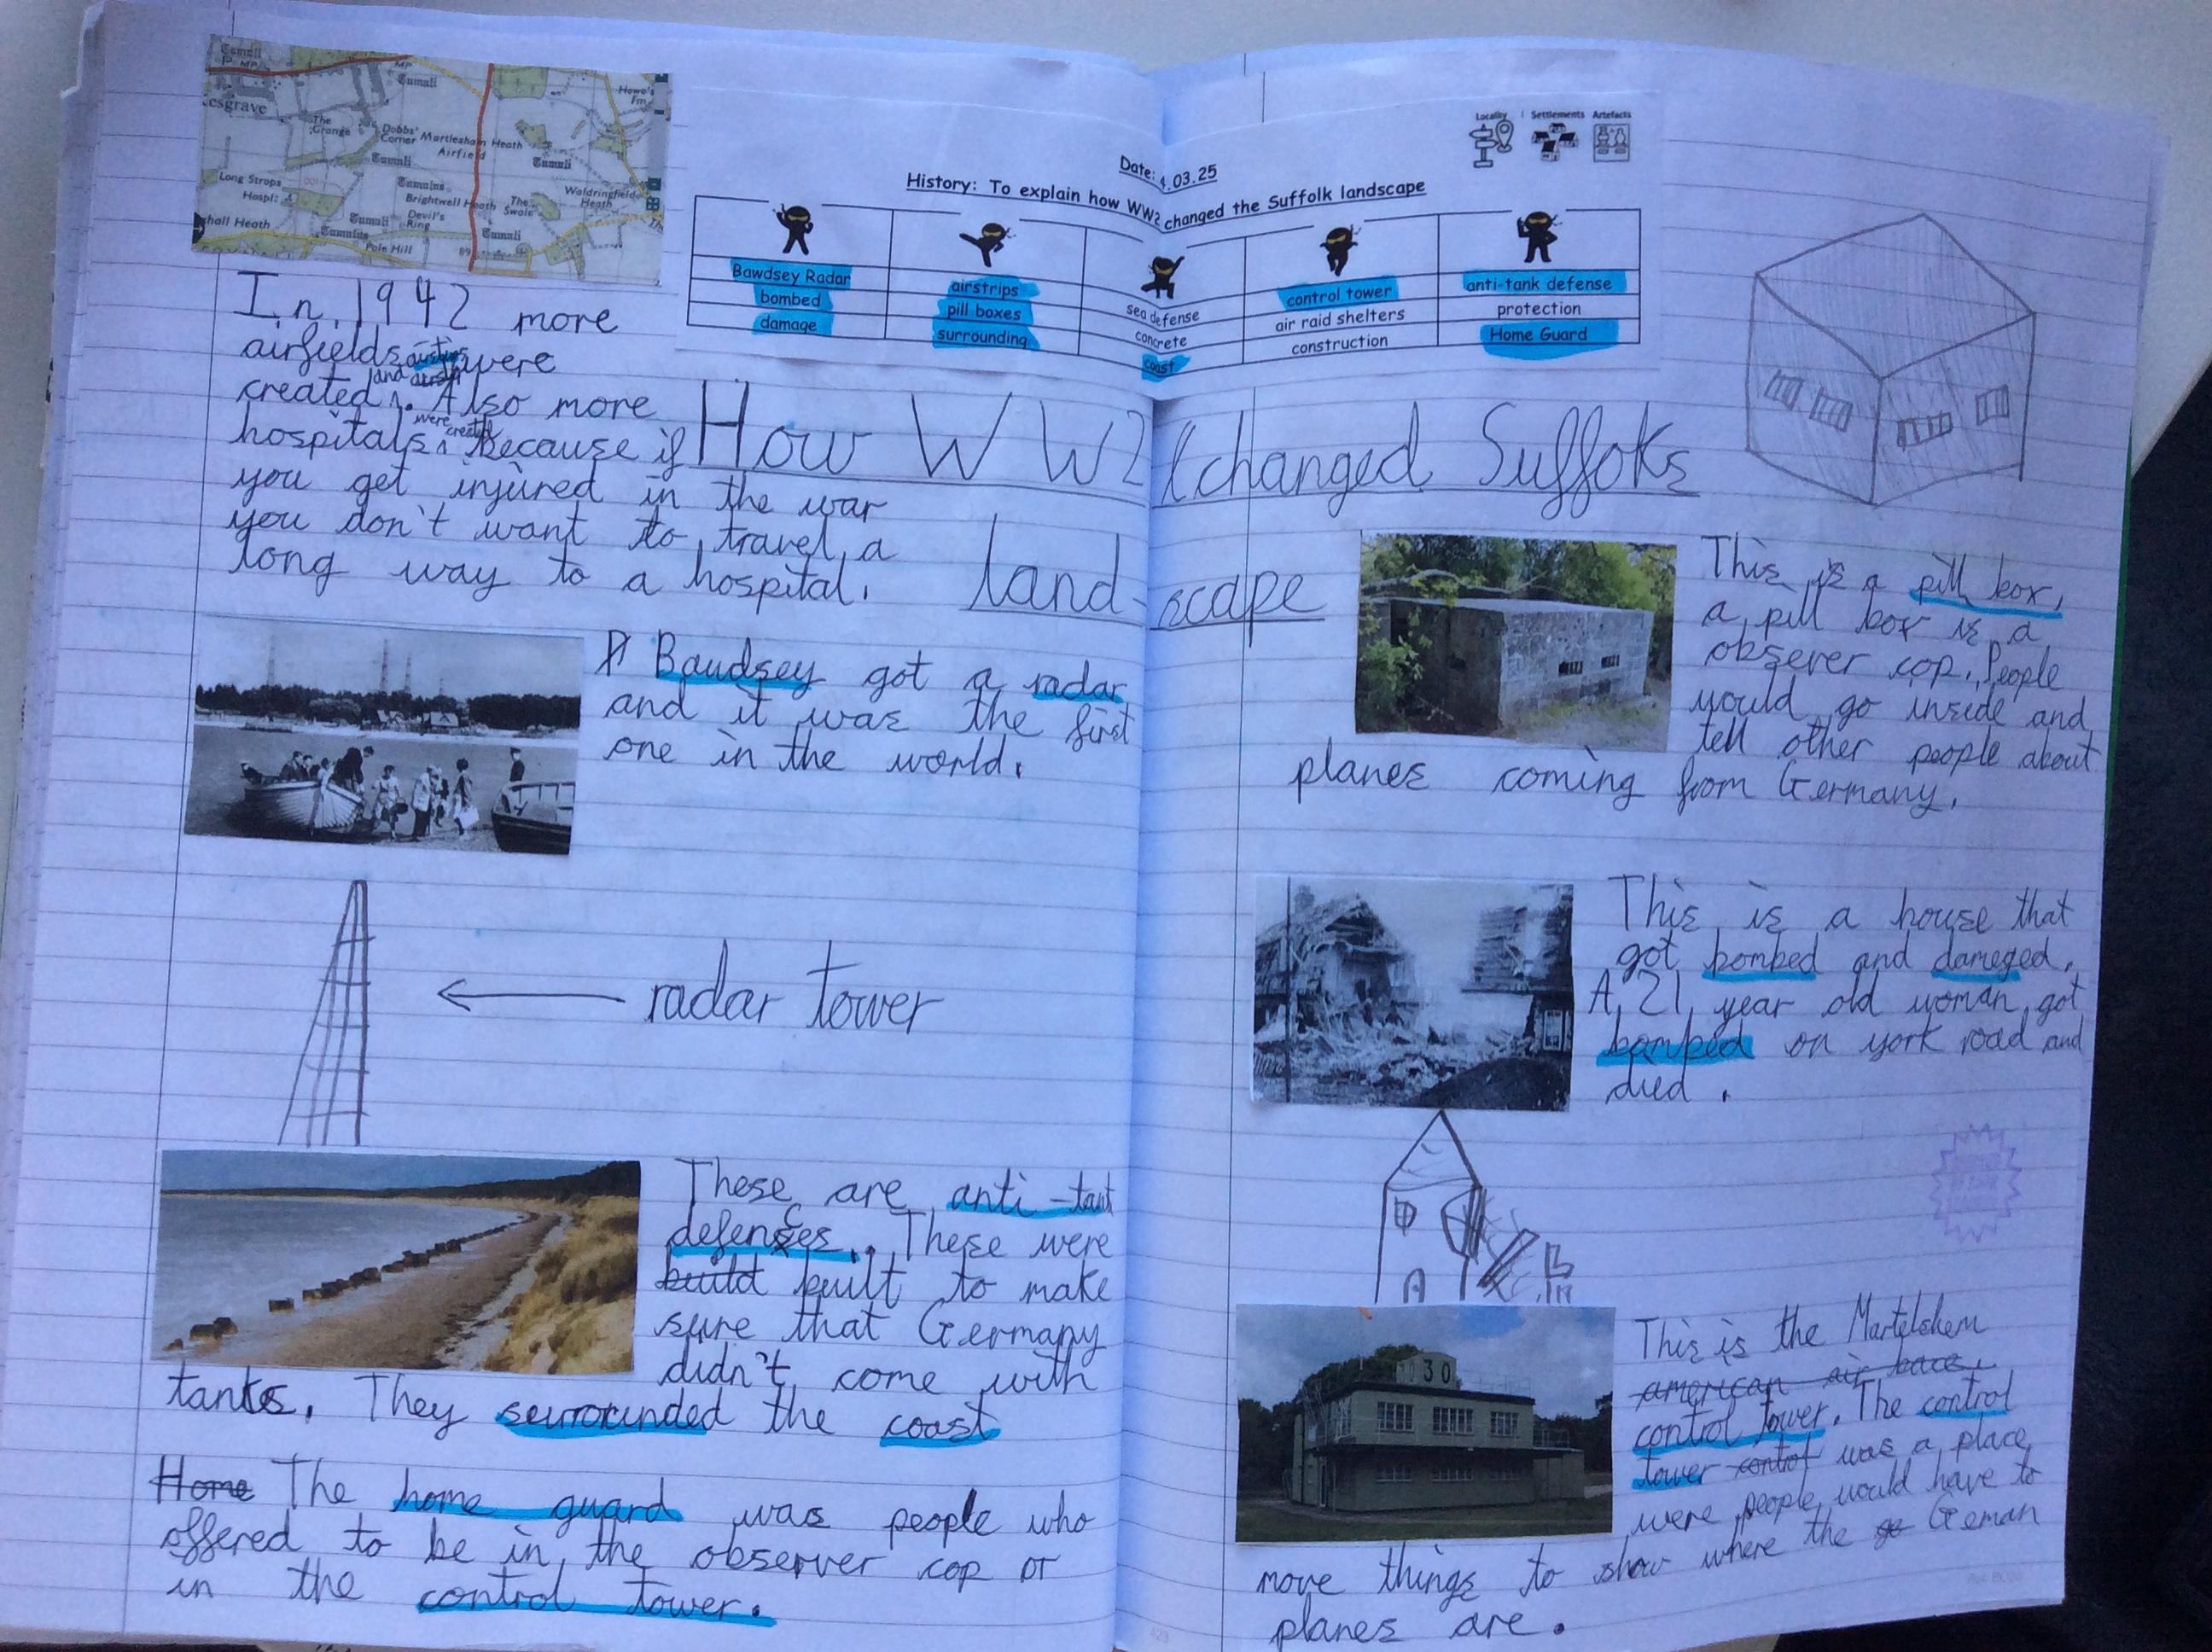 Tumuli
MP
Tumuli
MP
Tumuli
Howe's
Fm
esgrave
The
Grange
Dobbs'
Corner
Martlesham Heath
Airfield
Tumuli
Tumuli
Long Strops
Hospl:
Tumulus
Brightwell Heath
The
Swale
Waldringfield
Heath
Devil's
Ring
Tumuli
Tumulus
Tumuli
hall Heath
Pole Hill
Locality
Settlements
Artefacts
Date: 4.03.25
History: To explain how WW2 changed the Suffolk landscape
Bawdsey Radar
bombed
damage
airstrips
pill boxes
surrounding
sea defense
concrete
coast
control tower
air raid shelters
construction
anti-tank defense
protection
Home Guard
How WW2 changed Suffoks
land-scape
In 1942 more
airfields were
created and airstrips. Also more
hospitals were created because if
you get injured in the war
you don't want to travel a
long way to a hospital.
Baudsey got a radar
and it was the first
one in the world.
radar tower
These are anti-tank
defences. These were
build built to make
sure that Germany
didn't come with
tanks. They surrounded the coast
Home The home guard was people who
offered to be in the observer cop or
in the control tower.
This is a pill box,
a pill box is a
obserer cop. People
would go inside and
tell other people about
planes coming from Germany.
This is a house that
got bombed and dameged.
A 21 year old woman got
bombed on york road and
died.
This is the Martelshem
american air bace.
control tower. The control
tower control was a place
were people would have to
move things to show where the ge German
planes are.
30